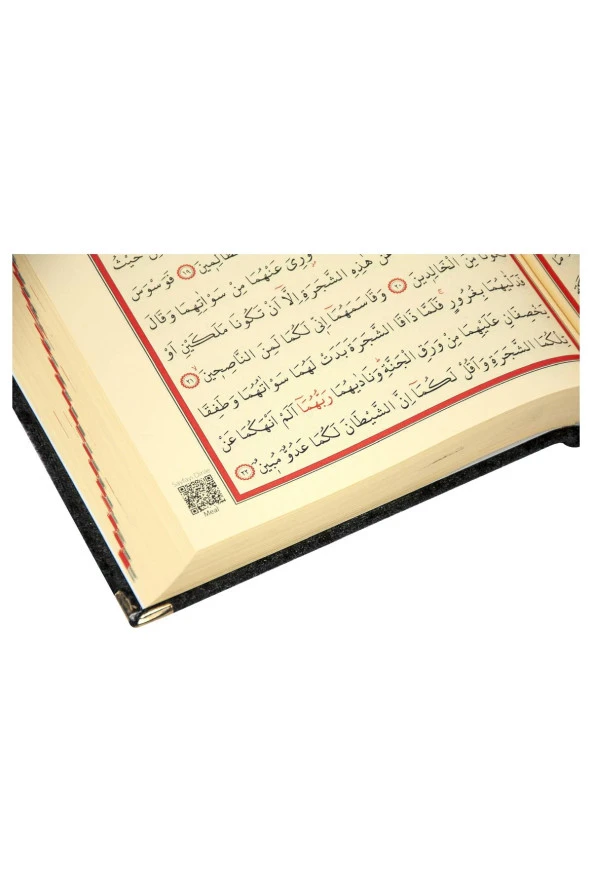 حَيْثُ
١٩ فَوَسْوَسَ
عَنْهُمَا مِنْ سَوْاٰتِهِمَا وَقَالَ
هٰذِهِ الشَّجَرَةِ اِلَّٓا اَنْ تَكُونَا مَلَكَيْنِ اَوْ
مِنَ الْخَالِدِينَ ٢٠ وَقَاسَمَهُمَٓا اِنّٖى لَكُمَا لَمِنَ النَّاصِحٖينَ ٢١
فَدَلّٰيهُمَا بِغُرُورٍ فَلَمَّا ذَاقَا الشَّجَرَةَ بَدَتْ لَهُمَا سَوْاٰتُهُمَا وَطَفِقَا
يَخْصِفَانِ عَلَيْهِمَا مِنْ وَرَقِ الْجَنَّةِ وَنَادٰيهُمَا رَبُّهُمَٓا اَلَمْ اَنْهَكُمَا عَنْ
تِلْكُمَا الشَّجَرَةِ وَاَقُلْ لَكُمَٓا اِنَّ الشَّيْطَانَ لَكُمَا عَدُوٌّ مُبٖينٌ ٢٢
Meal